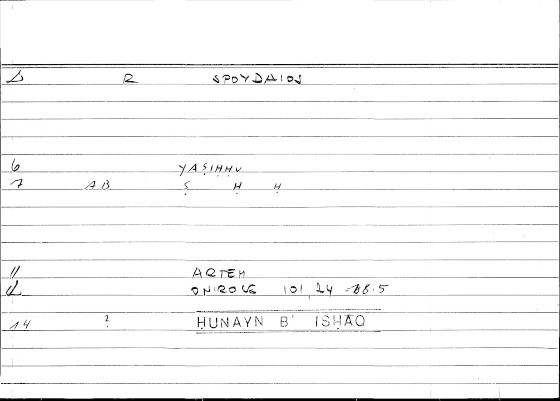 R SPOYDAIOS
6 YAṢIḤḤU
7 AB Ṣ Ḥ Ḥ
11 ARTEM
12 ONIROCR 101,24 -88.5
14 ? ḤUNAYN B' ISḤAQ